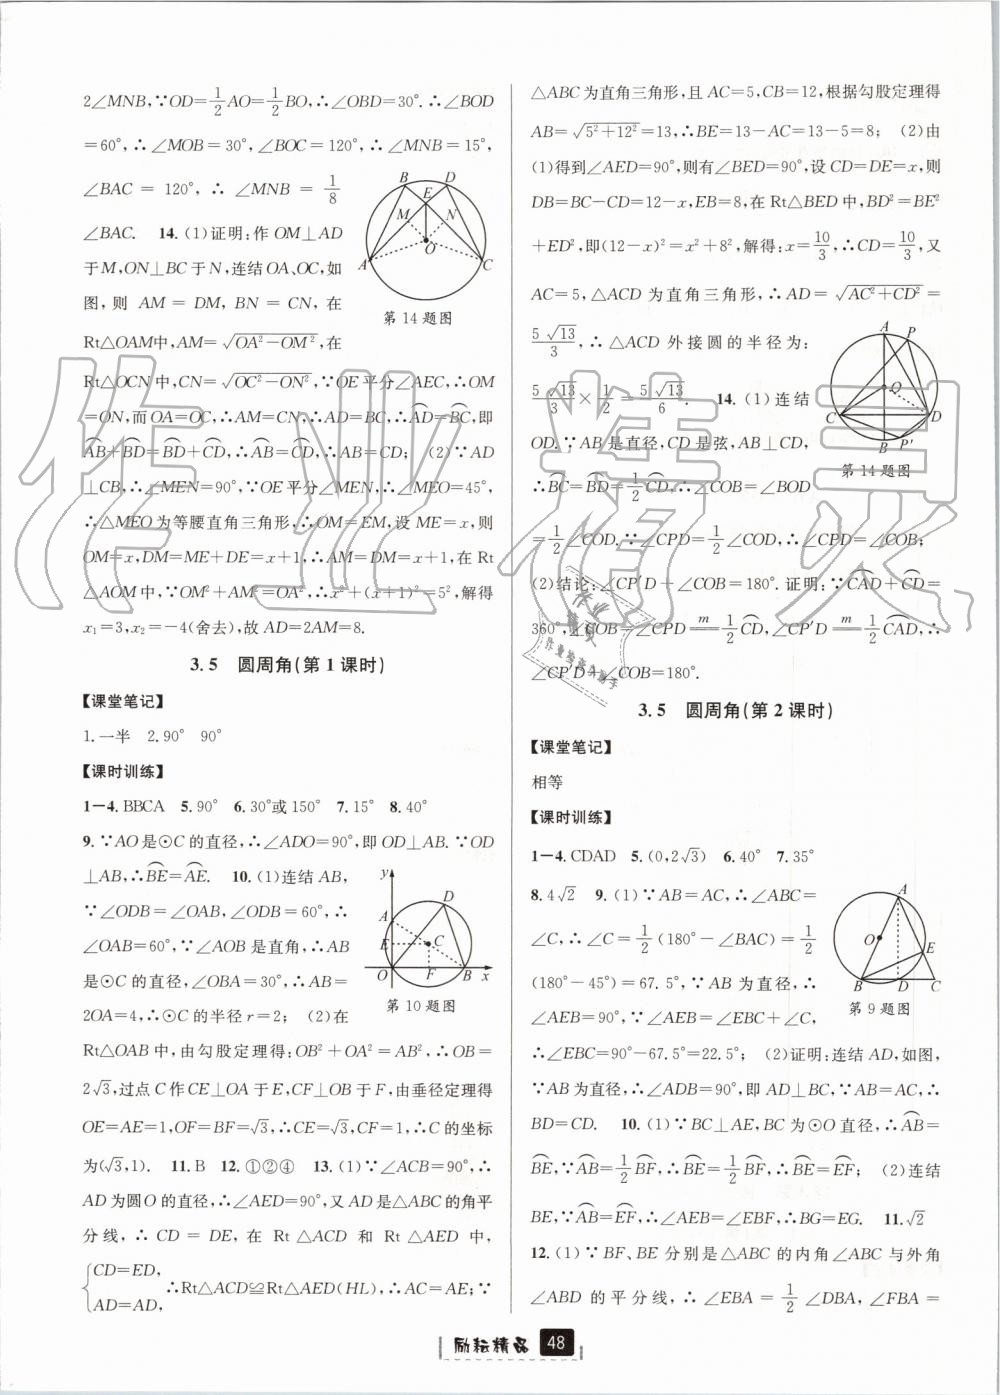 2∠MNB,∵OD=1/2AO=1/2BO,∴∠OBD=30°.∴∠BOD
=60°,∴∠MOB=30°,∠BOC=120°,∴∠MNB=15°,
∠BAC=120°,∴∠MNB=1/8
∠BAC. 14.(1)证明:作OM⊥AD
于M,ON⊥BC于N,连结OA、OC,如
图,则 AM=DM,BN=CN,在
Rt△OAM中,AM=√(OA²-OM²),在
Rt△OCN中,CN=√(OC²-ON²),∵OE平分∠AEC,∴OM
=ON,而OA=OC,∴AM=CN,∴AD=BC,∴⌒AD=⌒BC,即
⌒AB+⌒BD=⌒BD+⌒CD,∴⌒AB=⌒CD,∴AB=CD; (2)∵AD
⊥CB,∴∠MEN=90°,∵OE平分∠MEN,∴∠MEO=45°,
∴△MEO为等腰直角三角形,∴OM=EM,设ME=x,则
OM=x,DM=ME+DE=x+1,∴AM=DM=x+1,在Rt
△AOM中,∵OM²+AM²=OA²,∴x²+(x+1)²=5²,解得
x₁=3,x₂=-4(舍去),故AD=2AM=8.
B D E M N O A C
第14题图
3.5 圆周角(第1课时)
【课堂笔记】
1.一半 2.90° 90°
【课时训练】
1-4. BBCA 5.90° 6.30°或150° 7.15° 8.40°
9.∵AO是⊙C的直径,∴∠ADO=90°,即OD⊥AB.∵OD
⊥AB,∴⌒BE=⌒AE. 10.(1)连结AB,
∵∠ODB=∠OAB,∠ODB=60°,∴
∠OAB=60°,∵∠AOB是直角,∴AB
是⊙C的直径,∠OBA=30°,∴AB=
2OA=4,∴⊙C的半径r=2; (2)在
Rt△OAB中,由勾股定理得:OB²+OA²=AB²,∴OB=
2√3,过点C作CE⊥OA于E,CF⊥OB于F,由垂径定理得
OE=AE=1,OF=BF=√3,∴CE=√3,CF=1,∴C的坐标
为(√3,1). 11.B 12.①②④ 13.(1)∵∠ACB=90°,∴
AD为圆O的直径,∴∠AED=90°,又AD是△ABC的角平
分线,∴CD=DE,在Rt△ACD和Rt△AED中,
{CD=ED,
AD=AD, ∴Rt△ACD≌Rt△AED(HL),∴AC=AE;∵
y D A E C O F B x
第10题图
△ABC为直角三角形,且AC=5,CB=12,根据勾股定理得
AB=√(5²+12²)=13,∴BE=13-AC=13-5=8; (2)由
(1)得到∠AED=90°,则有∠BED=90°,设CD=DE=x,则
DB=BC-CD=12-x,EB=8,在Rt△BED中,BD²=BE²
+ED²,即(12-x)²=x²+8²,解得:x=10/3,∴CD=10/3,又
AC=5,△ACD为直角三角形,∴AD=√(AC²+CD²)=
5√13/3,∴△ACD外接圆的半径为:
5√13/3×1/2=5√13/6. 14.(1)连结
OD.∵AB是直径,CD是弦,AB⊥CD,
∴⌒BC=⌒BD=1/2⌒CD,∴∠COB=∠BOD
=1/2∠COD.∵∠CPD=1/2∠COD,∴∠CPD=∠COB;
(2)结论:∠CP′D+∠COB=180°.证明:∵⌒CAD+⌒CD=
360°,∠COB=∠CPD m= 1/2⌒CD,∠CP′D m= 1/2⌒CAD,∴
∠CP′D+∠COB=180°.
A P O C D B P′
第14题图
3.5 圆周角(第2课时)
【课堂笔记】
相等
【课时训练】
1-4. CDAD 5.(0,2√3) 6.40° 7.35°
8.4√2 9.(1)∵AB=AC,∴∠ABC=
∠C,∴∠C=1/2(180°-∠BAC)=1/2
(180°-45°)=67.5°,∵AB为直径,∴
∠AEB=90°,∵∠AEB=∠EBC+∠C,
∴∠EBC=90°-67.5°=22.5°; (2)证明:连结AD,如图,
∵AB为直径,∴∠ADB=90°,即AD⊥BC,∵AB=AC,∴
BD=CD. 10.(1)∵BC⊥AE,BC为⊙O直径,∴⌒AB=
⌒BE,∵⌒AB=1/2⌒BF,∴⌒BE=1/2⌒BF,∴⌒BE=⌒EF; (2)连结
BE,∵⌒AB=⌒EF,∴∠AEB=∠EBF,∴BG=EG. 11.√2
12.(1)∵BF、BE分别是△ABC的内角∠ABC与外角
∠ABD的平分线,∴∠EBA=1/2∠DBA,∠FBA=
A O E B D C
第9题图
励耘精品 48
作业精灵